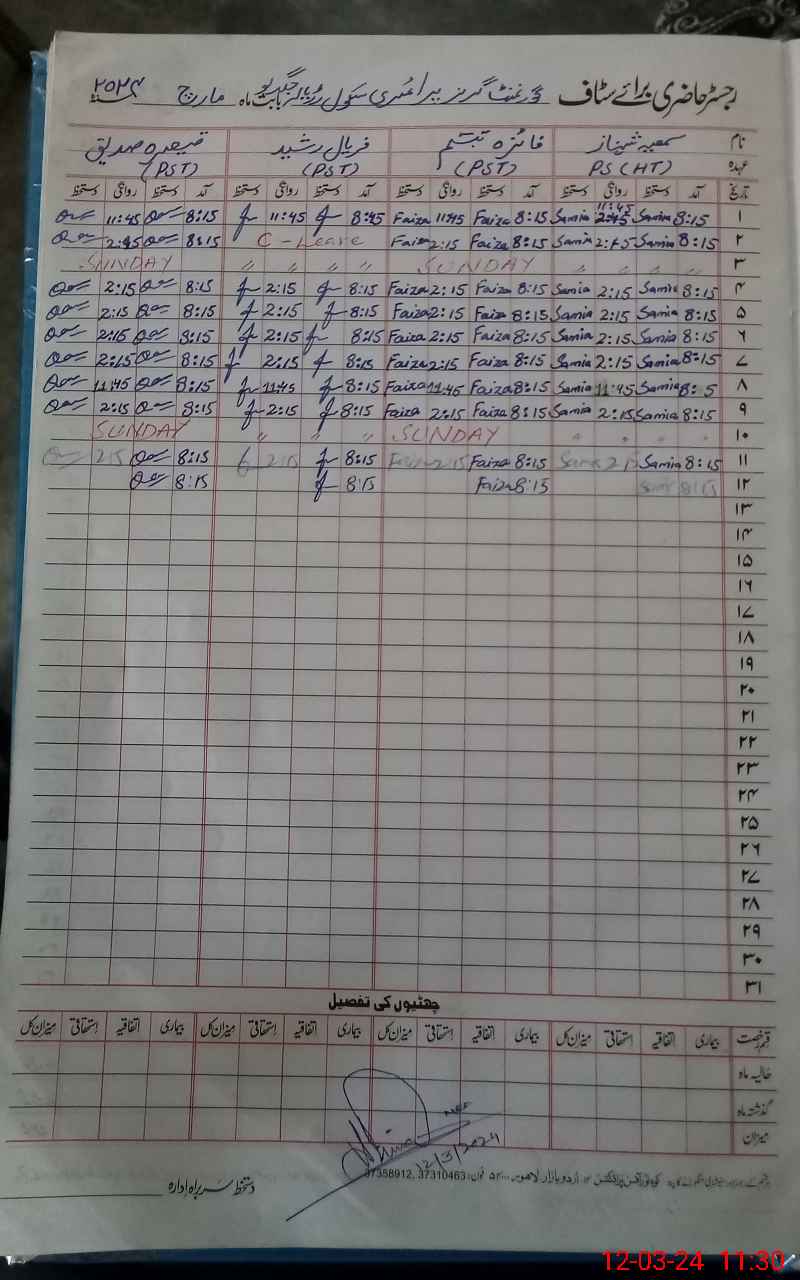 رجسٹر حاضری برائے سٹاف گورنمنٹ گرلز پرائمری سکول بابت ماہ مارچ ٢٥٢٤
نام سمعیہ شہناز فائزہ تبسم فریال رشید قیصرہ صدیق
عہدہ PS (HT) (PST) (PST) (PST)
تاریخ آمد دستخط روانگی دستخط آمد دستخط روانگی دستخط آمد دستخط روانگی دستخط آمد دستخط روانگی دستخط
١ 8:15 Samia 11:45 2:45 Samia 8:15 Faiza 11:45 Faiza 8:45 11:45 8:15 11:45
٢ 8:15 Samia 2:45 Samia 8:15 Faiza 2:15 Faiza C-Leave 8:15 2:45
٣ " " " " SUNDAY " " " " SUNDAY
۴ 8:15 Samia 2:15 Samia 8:15 Faiza 2:15 Faiza 8:15 2:15 8:15 2:15
۵ 8:15 Samia 2:15 Samia 8:15 Faiza 2:15 Faiza 8:15 2:15 8:15 2:15
۶ 8:15 Samia 2:15 Samia 8:15 Faiza 2:15 Faiza 8:15 2:15 8:15 2:15
۷ 8:15 Samia 2:15 Samia 8:15 Faiza 2:15 Faiza 8:15 2:15 8:15 2:15
۸ 8: 5 Samia 11:45 Samia 8:15 Faiza 11:45 Faiza 8:15 11:45 8:15 11:45
۹ 8:15 Samia 2:15 Samia 8:15 Faiza 2:15 Faiza 8:15 2:15 8:15 2:15
۱۰ " " " " SUNDAY " " " SUNDAY
۱۱ 8:15 Samia 2:15 Samia 8:15 Faiza 2:15 Faiza 8:15 2:15 8:15 2:15
۱۲ 8:15 Samia 8:15 Faiza 8:15 8:15
۱۳
۱۴
۱۵
۱۶
۱۷
۱۸
۱۹
۲۰
۲۱
۲۲
۲۳
۲۴
۲۵
۲۶
۲۷
۲۸
۲۹
۳۰
۳۱
چھٹیوں کی تفصیل
قسم رخصت بیماری اتفاقیہ استحقاقی میزان کل بیماری اتفاقیہ استحقاقی میزان کل بیماری اتفاقیہ استحقاقی میزان کل بیماری اتفاقیہ استحقاقی میزان کل
حالیہ ماہ
گذشتہ ماہ
میزان
12/3/2024
اردو بازار لاہور فون: 37310463, 37358912
دستخط سربراہ ادارہ
12-03-24 11:30